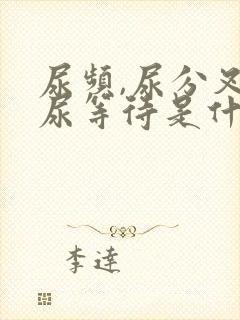 尿频,尿分叉
尿等待是什
李逵